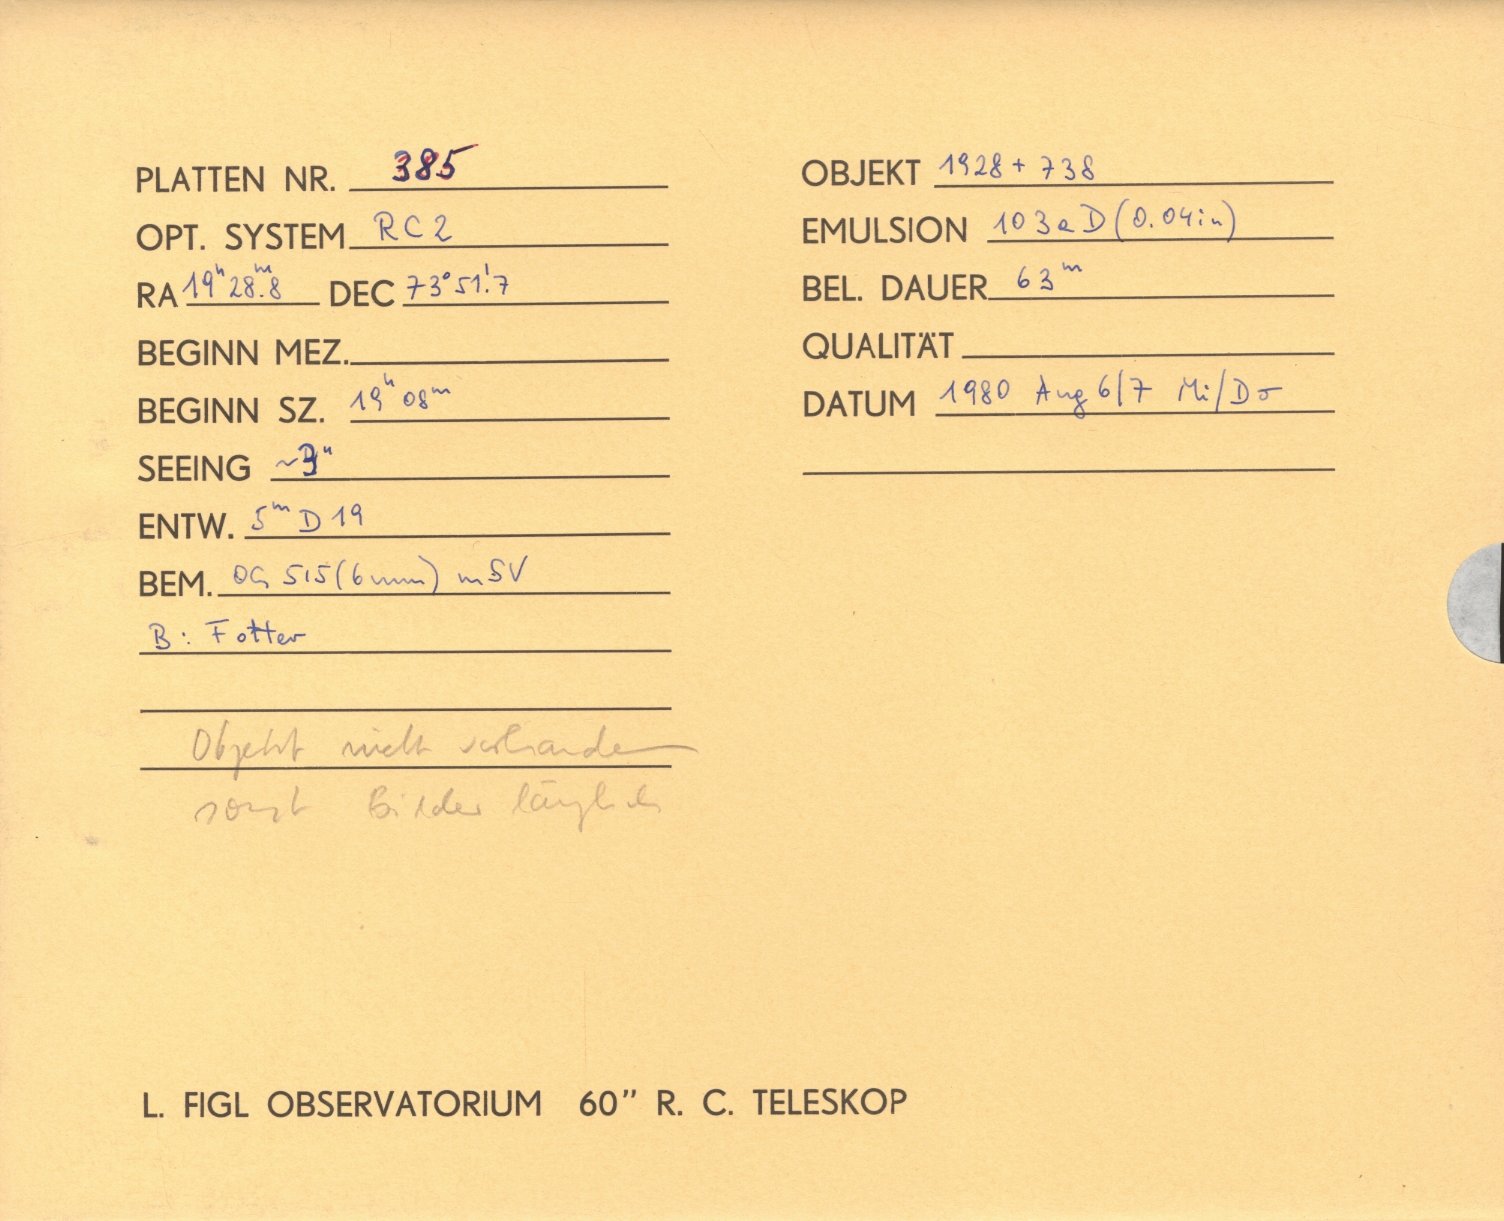 PLATTEN NR. 385
OPT. SYSTEM RC2
RA 19h 28m.8 DEC 73° 51'.7
BEGINN MEZ.
BEGINN SZ. 19h 08m
SEEING ~3"
ENTW. 5m D19
BEM. OG 515 (6mm) mSV
B: Fotter
Objekt nicht vorhanden
sonst Bilder länglich
OBJEKT 1928+738
EMULSION 103aD (0.04in)
BEL. DAUER 63m
QUALITÄT
DATUM 1980 Aug 6/7 Mi/Do
L. FIGL OBSERVATORIUM 60" R. C. TELESKOP